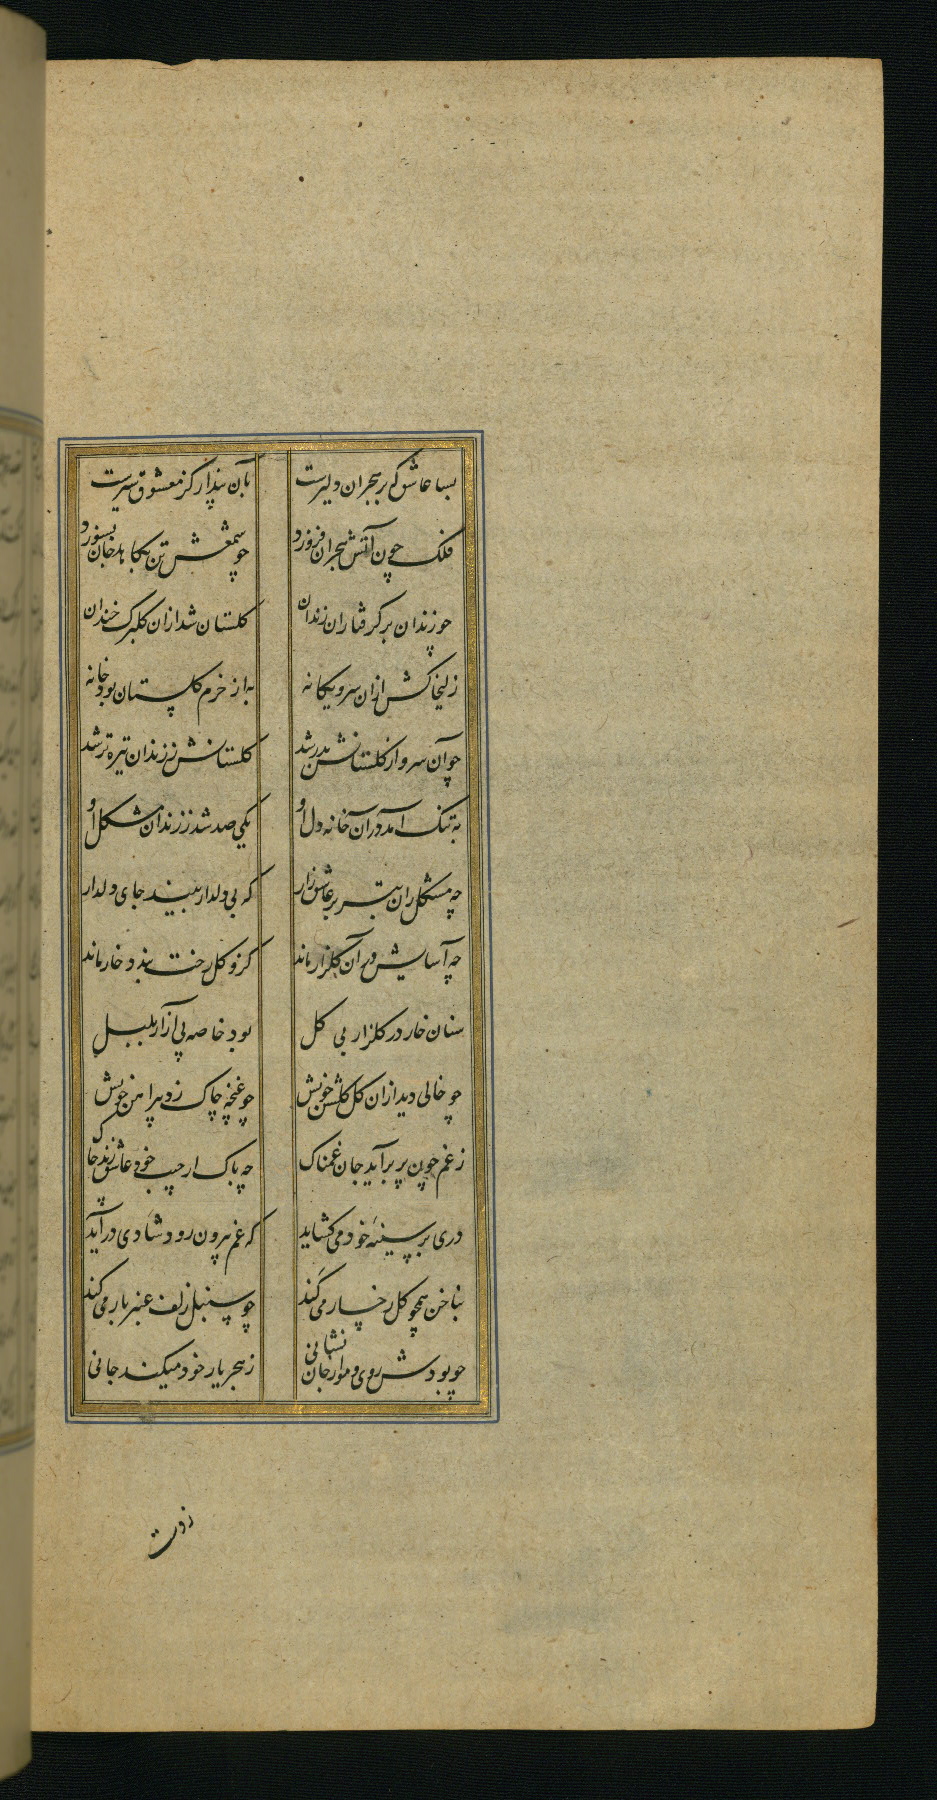 بسا عاشق که بر هجران دلیرست بآن پندار کز معشوق سیرست
فلک چون آتش هجران فروزد چو شمعش تن بکاهد جان بسوزد
چو زندان بر گرفتاران زندان گلستان شد ازان گلبرگ خندان
زلیخا کش ازان سرو یگانه به از خرم گلستان بود خانه
چو آن سرو از گلستانش بدر شد گلستانش ز زندان تیره تر شد
به تنگ آمد در آن خانه دل او یکی صد شد ز زندان مشکل او
چه مشکل زان بتر بر عاشق زار که بی دلدار بیند جای دلدار
چه آسایش در آن گلزار ماند کزو گل رخت بندد خار ماند
سنان خار در گلزار بی گل بود خاصه پی آزار بلبل
چو خالی دید ازان گل گلشن خویش چو غنچه چاک زد پیراهن خویش
ز غم چون بر بر آید جان غمناک چه باک ار جیب خود عاشق زند چاک
دری بر سینهٔ خود می گشاید که غم بیرون رود شادی در آید
بناخن همچو گل رخسار می کند چو سنبل زلف عنبر بار می کند
چو بودش روی و مو از جان نشانی ز هجر یار خود میکند جانی
ز دست